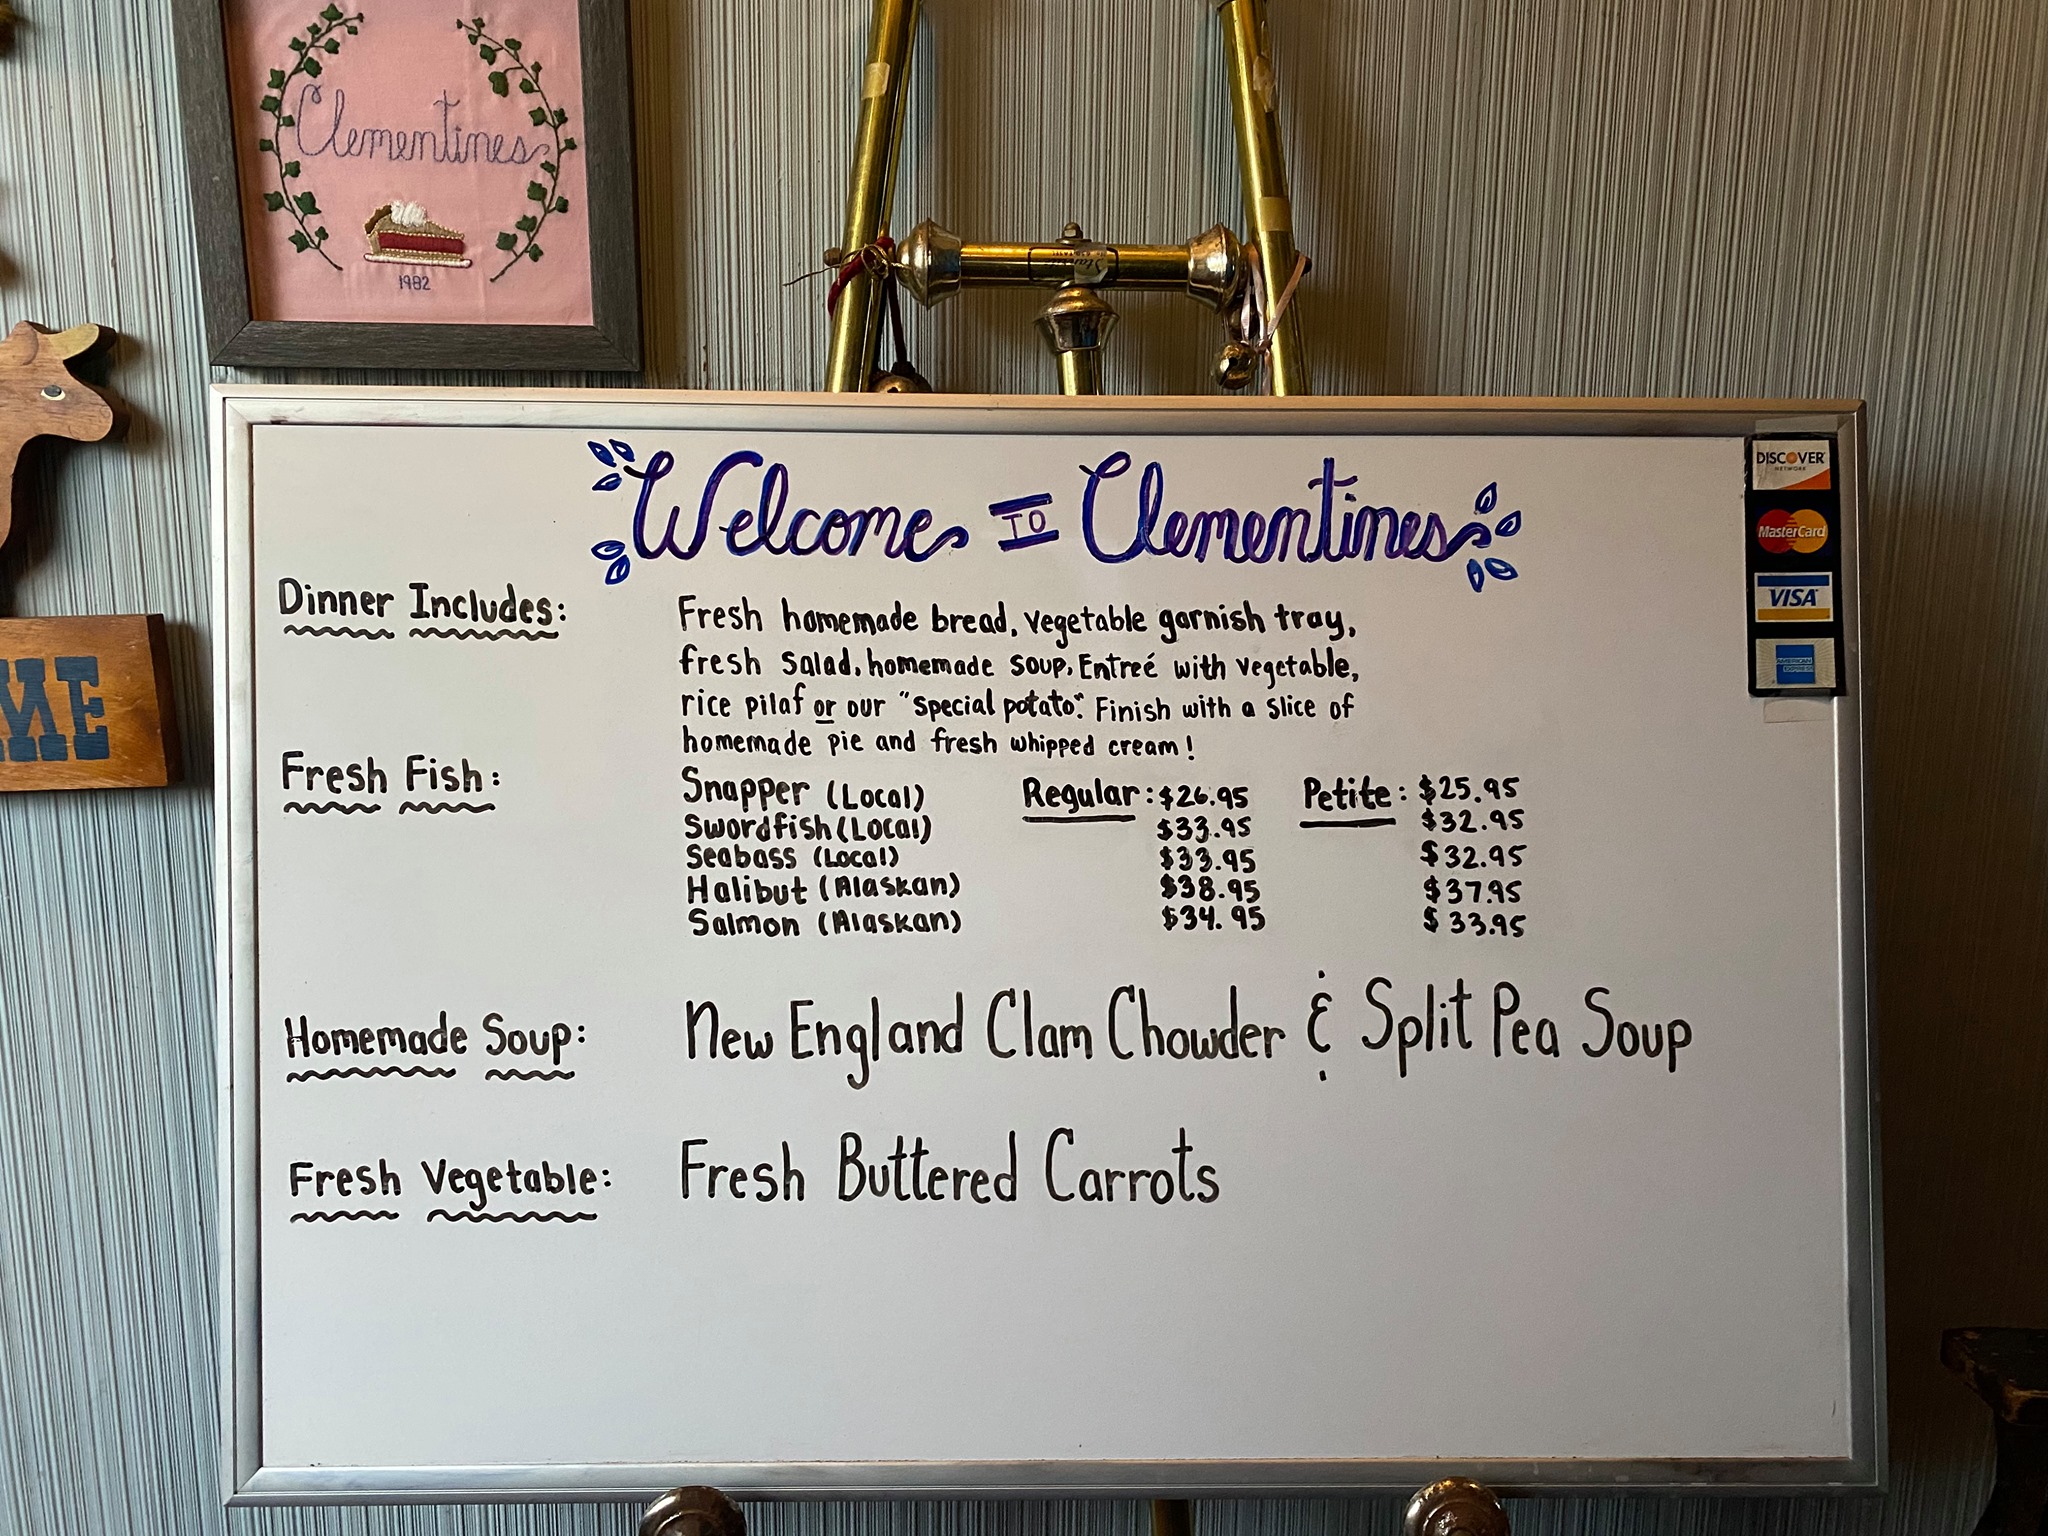 Clementines
1982
Welcome TO Clementines
DISCOVER
NETWORK
MasterCard
VISA
AMERICAN
EXPRESS
ME
Dinner Includes:
Fresh homemade bread, vegetable garnish tray,
fresh salad, homemade soup, Entreé with vegetable,
rice pilaf or our "special potato". Finish with a slice of
homemade pie and fresh whipped cream!
Fresh Fish:
Snapper (Local) Regular: $26.95 Petite: $25.95
Swordfish (Local) $33.95 $32.95
Seabass (Local) $33.95 $32.95
Halibut (Alaskan) $38.95 $37.95
Salmon (Alaskan) $34.95 $33.95
Homemade Soup: New England Clam Chowder & Split Pea Soup
Fresh Vegetable: Fresh Buttered Carrots